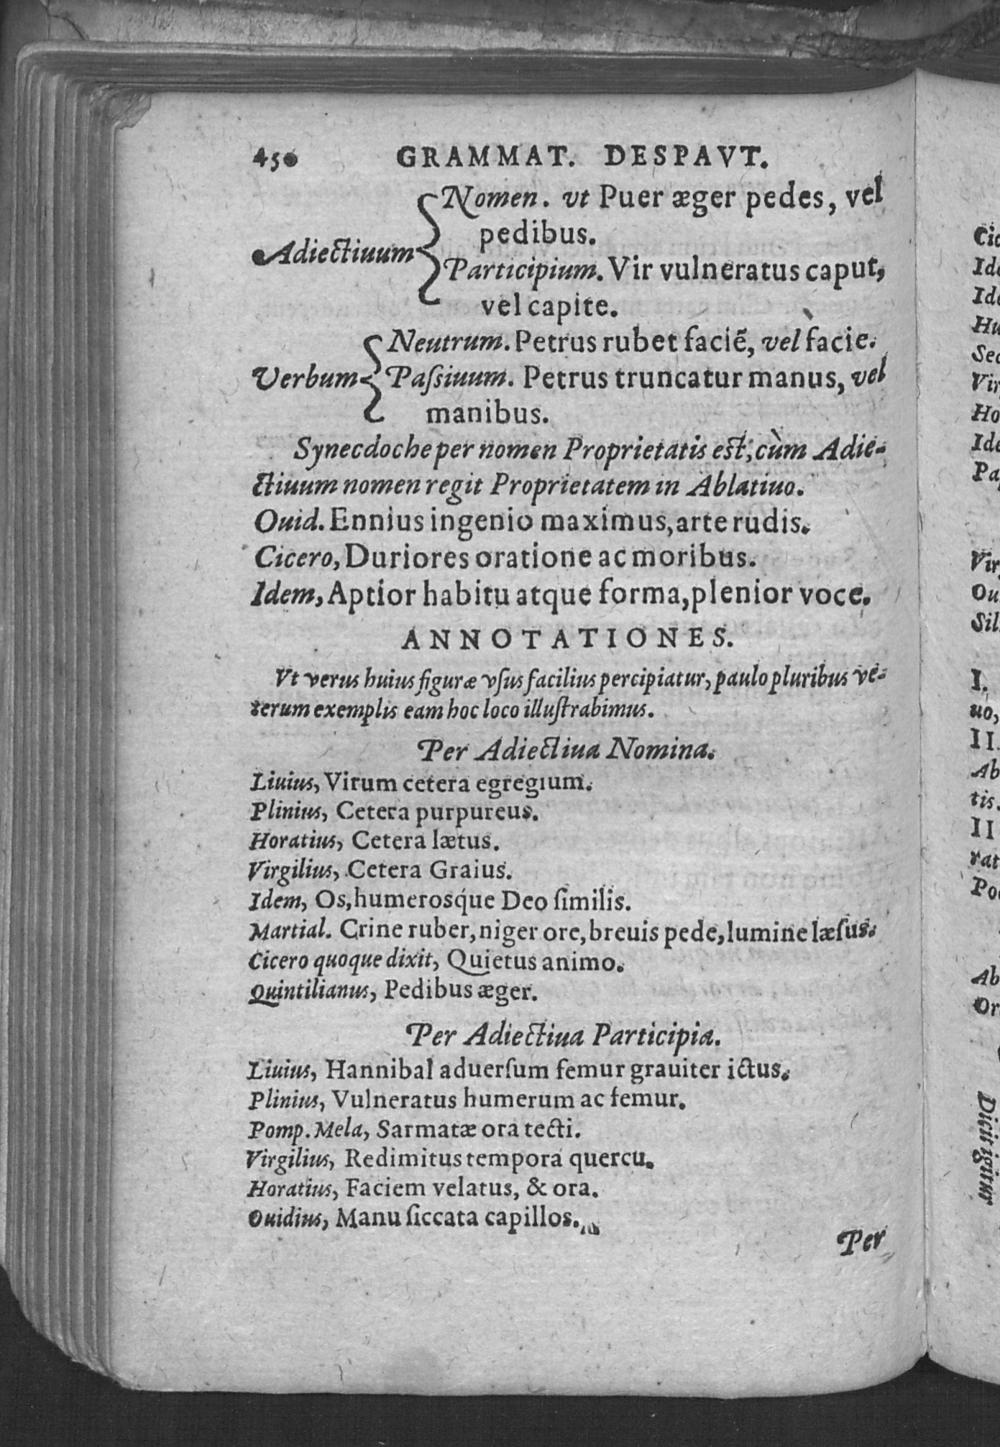 450 GRAMMAT. DESPAVT.
Nomen. vt Puer æger pedes, vel
pedibus.
Adiectiuum
Participium. Vir vulneratus caput,
vel capite.
Neutrum. Petrus rubet faciē, vel facie.
Verbum Paſsiuum. Petrus truncatur manus, vel
manibus.
Synecdoche per nomen Proprietatis est, cùm Adie-
ctiuum nomen regit Proprietatem in Ablatiuo.
Ouid. Ennius ingenio maximus, arte rudis.
Cicero, Duriores oratione ac moribus.
Idem, Aptior habitu atque forma, plenior voce.
ANNOTATIONES.
Vt verus huius figuræ vſus facilius percipiatur, paulo pluribus ve-
terum exemplis eam hoc loco illuſtrabimus.
Per Adiectiua Nomina.
Liuius, Virum cetera egregium.
Plinius, Cetera purpureus.
Horatius, Cetera lætus.
Virgilius, Cetera Graius.
Idem, Os, humerosq́ue Deo ſimilis.
Martial. Crine ruber, niger ore, breuis pede, lumine læſus.
Cicero quoque dixit, Quietus animo.
Quintilianus, Pedibus æger.
Per Adiectiua Participia.
Liuius, Hannibal aduerſum femur grauiter ictus.
Plinius, Vulneratus humerum ac femur.
Pomp. Mela, Sarmatæ ora tecti.
Virgilius, Redimitus tempora quercu.
Horatius, Faciem velatus, & ora.
Ouidius, Manu ſiccata capillos.
Per
Cic
Ide
Ide
Hu
Sec
Vir
Ho
Ide
Pa
Vir
Ou
Sil
I.
uo,
II.
Ab
tis.
II
rat
Poe
Ab
Or
Dicit igitur